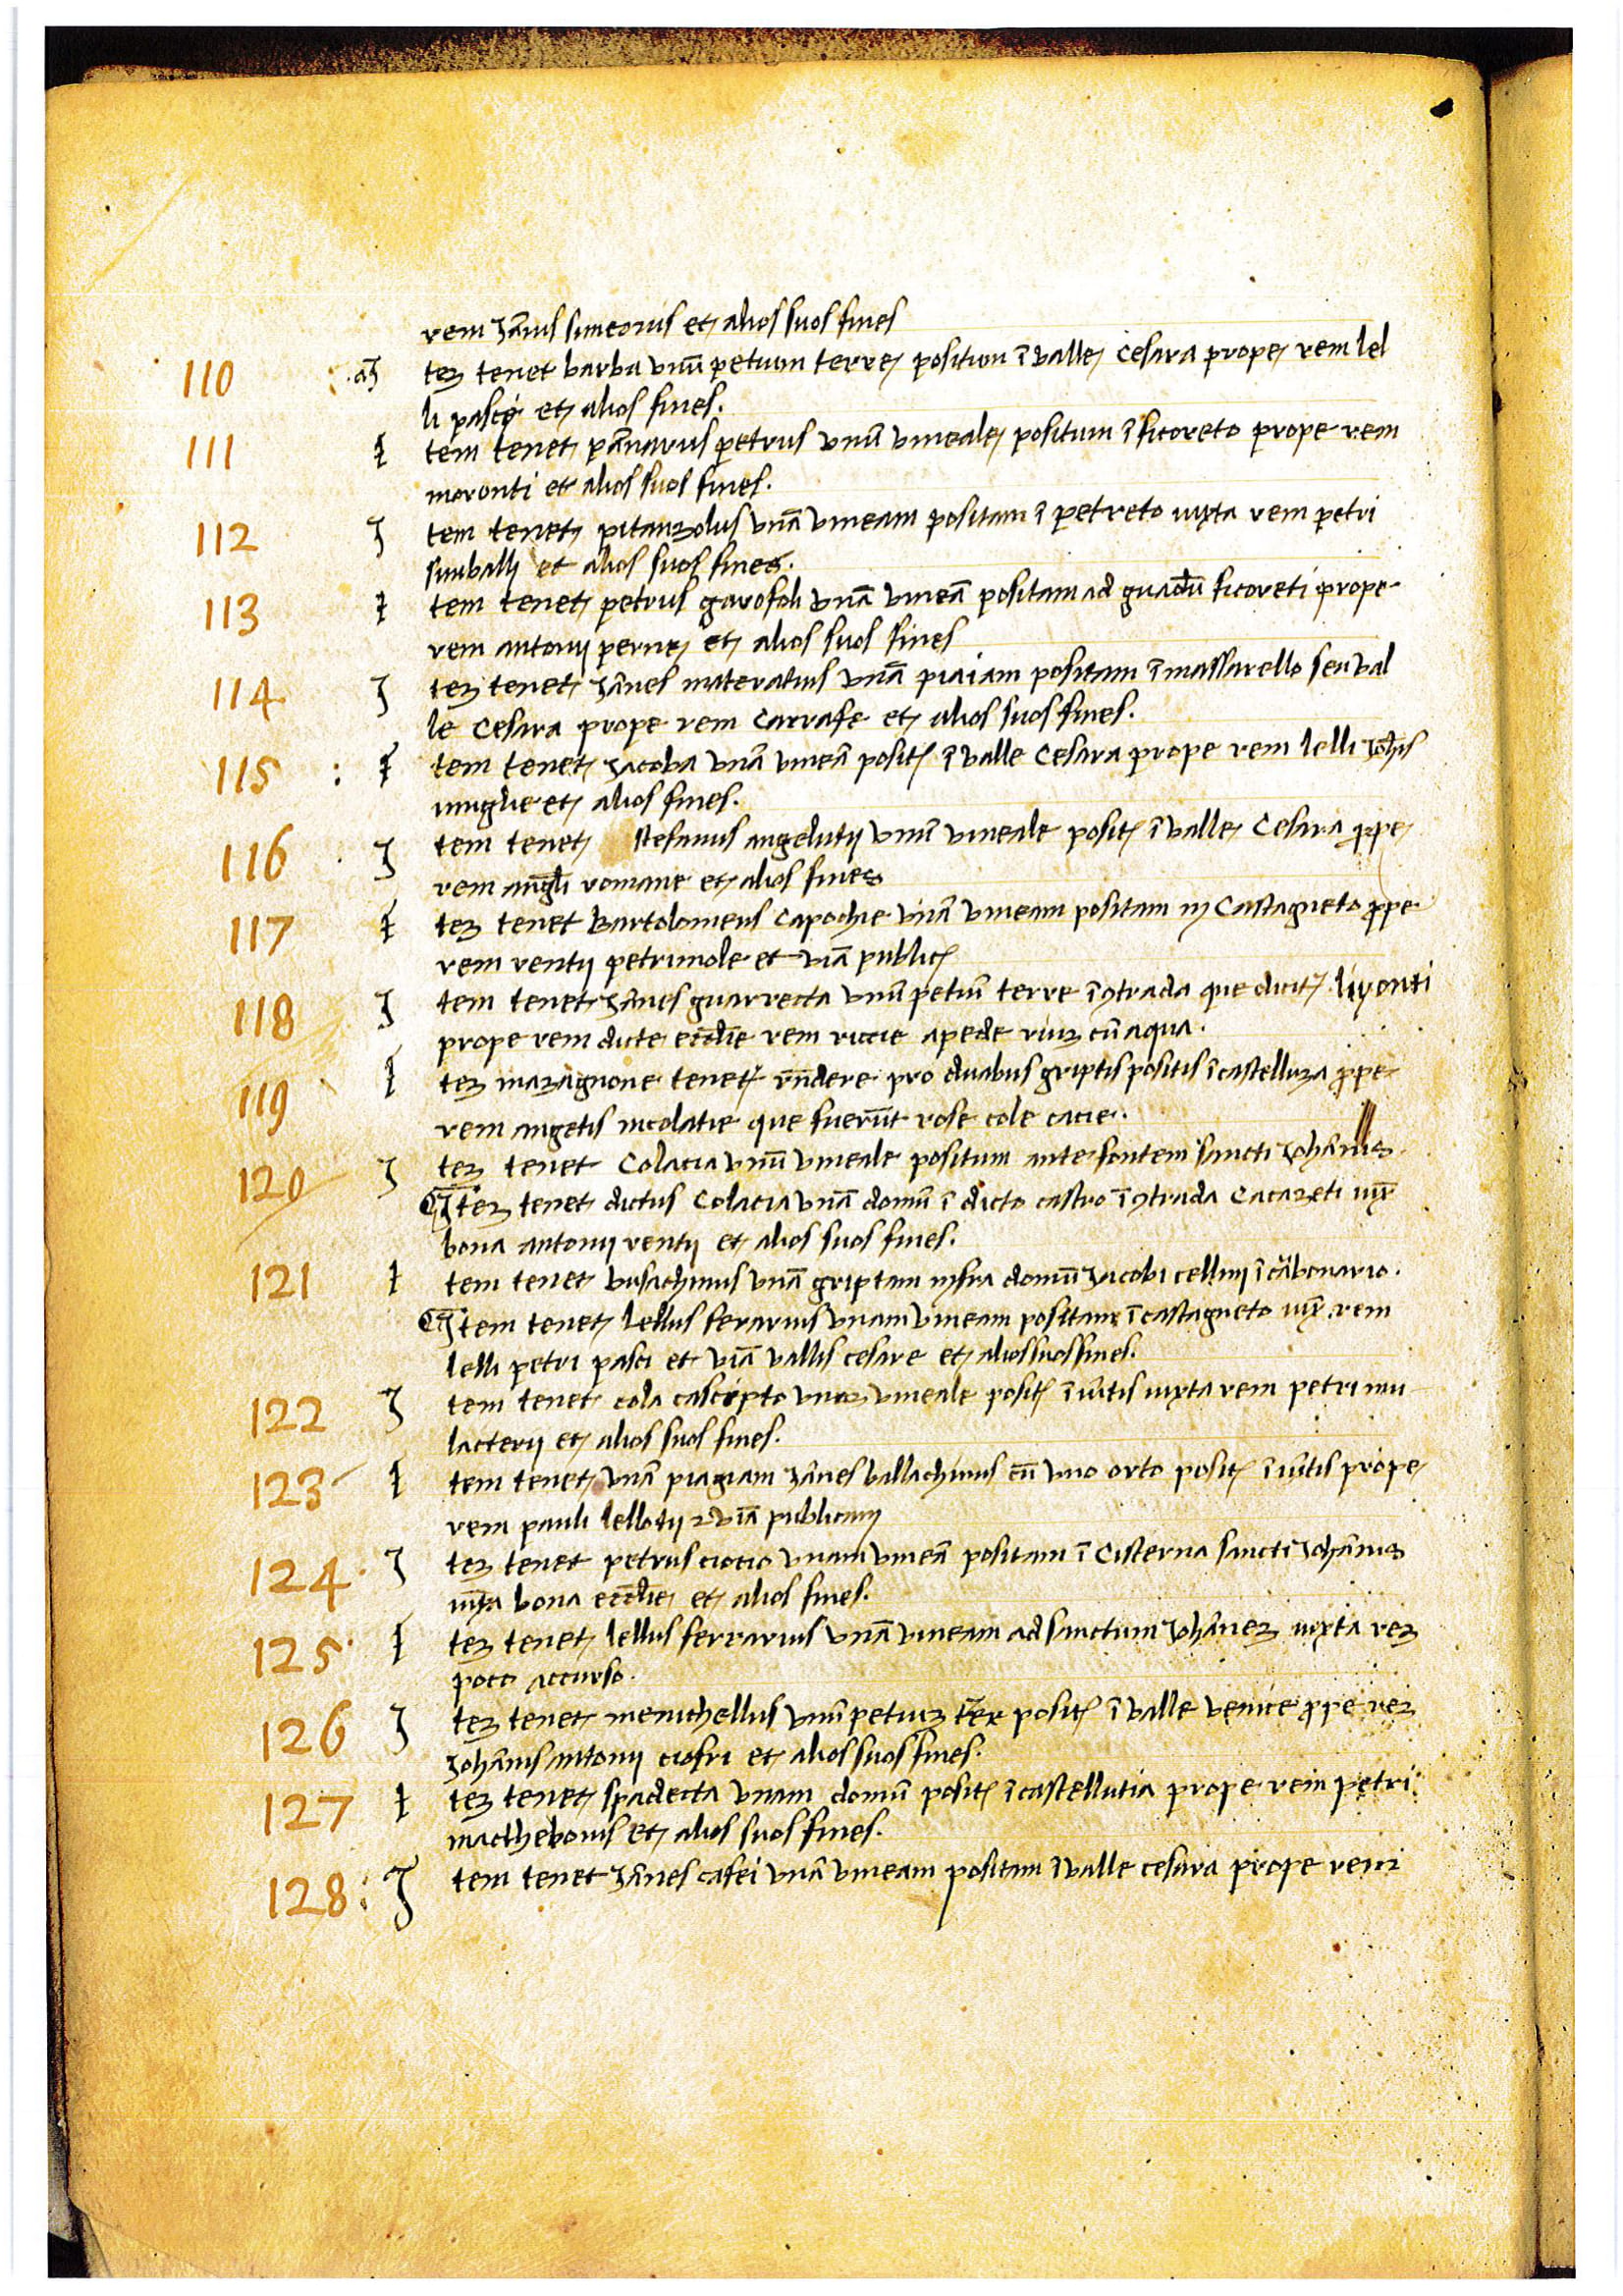 rem Jãnis simeonis et alios suos fines
110 Itez tenet barba unũ petium terre positum ĩ valle Cesara prope rem lel
li pasce et alios fines.
111 Item tenet petrus unũ vineale positum ĩ ficoreto prope rem
moronti et alios suos fines.
112 Item tenet pitanzolus unã vineam positam ĩ petreto iuxta rem petri
simballi et alios suos fines.
113 Item tenet petrus garofoli unã vineã positam ad guadũ ficoreti prope
rem antonij perne et alios suos fines
114 Itez tenet Jãnes materatius unã piaiam positam ĩ massarello seu val
le Cesara prope rem Carrafe et alios suos fines.
115 Item tenet Jacoba unã vineã posit ĩ valle Cesara prope rem lelli Johis
miglie et alios fines.
116 Item tenet stefanus angelutij unũ vineale posit ĩ valle Cesara ꝓpe
rem angli romane et alios fines
117 Itez tenet Bartolomeus Capochie unã vineam positam in Castagneto ꝓpe
rem rentij petrimole et viã public
118 Item tenet Jãnes guarrecta unũ petiũ terre ĩ ꝯtrada que dicit liponti
prope rem dicte eccl̃ie rem riccie apede riuz cũ aqua.
119 Itez mazagnone tenet rñdere pro duabus griptis positis ĩ castelluza ꝓpe
rem angetis nicolatie que fuerũt rose cole cacie.
120 Itez tenet Colacia unũ vineale positum ante fontem sancti Johãnis
Itez tenet dictus Colacia unã domũ ĩ dicto castro ĩ ꝯtrada Cacazeti iux̃
bona antonij rentij et alios suos fines.
121 Item tenet busichinus unã griptam infra domũ Jacobi cellini ĩ cãbonario.
Item tenet lellus ferarius unam vineam positam ĩ castagneto iux̃ rem
lelli petri pasci et viã vallis cesare et alios suos fines.
122 Item tenet cola cascipto unuz vineale posit ĩ iũtis iuxta rem petri mu
lacterij et alios suos fines.
123 Item tenet unã piagiam Jãnes ballachinus cũ uno orto posit ĩ iũtis prope
rem pauli lellotij ⁊ viã publicam
124 Itez tenet petrus ciocio unam vineã positam ĩ Cisterna sancti Johãnis
iuxta bona eccl̃ie et alios fines.
125 Itez tenet lellus ferrarius unã vineam ad sanctum Johãnez iuxta rez
poco accurso.
126 Itez tenet menichellus unũ petiuz terr posit ĩ valle venice ꝓpe rez
Johãnis antonij ciofri et alios suos fines.
127 Itez tenet spadecta unam domũ posit ĩ castellutia prope rem petri
macthebonis et alios suos fines.
128 Item tenet Jãnes cafei unã vineam positam ĩ valle cesara prope rem